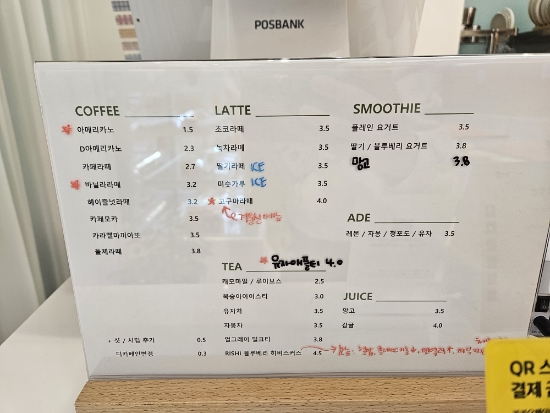 POSBANK
COFFEE
아메리카노 1.5
D아메리카노 2.3
카페라떼 2.7
바닐라라떼 3.2
헤이즐넛라떼 3.2
카페모카 3.5
카라멜마끼아또 3.5
돌체라떼 3.8
+ 샷 / 시럽 추가 0.5
디카페인변경 0.3
LATTE
초코라떼 3.5
녹차라떼 3.5
딸기라떼 ICE 3.5
미숫가루 ICE 3.5
고구마라떼 4.0
TEA
유자애플티 4.0
캐모마일 / 루이보스 2.5
복숭아아이스티 3.0
유자차 3.5
자몽차 3.5
얼그레이 밀크티 3.8
RISHI 블루베리 히비스커스 4.5
SMOOTHIE
플레인 요거트 3.5
딸기 / 블루베리 요거트 3.8
망고 3.8
ADE
레몬 / 자몽 / 청포도 / 유자 3.5
JUICE
망고 3.5
감귤 4.0
QR 스
결제